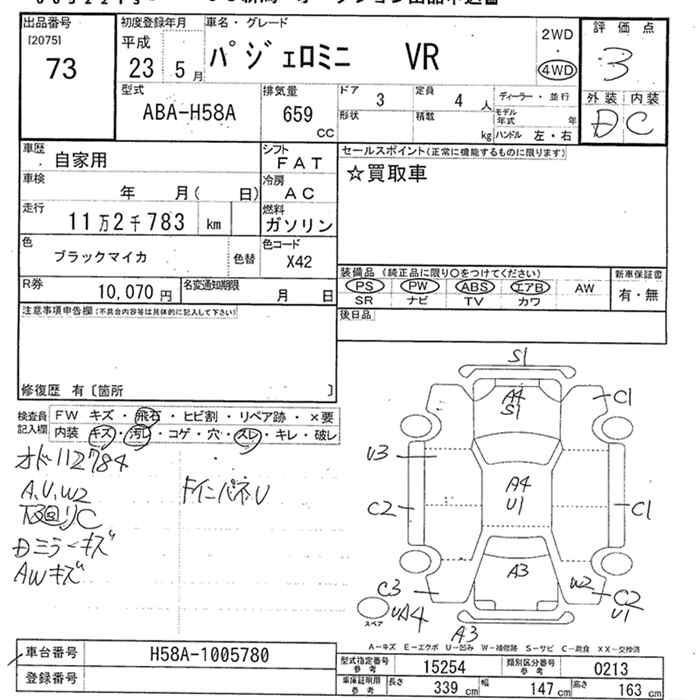 出品番号
[2075]
73
初度登録年月
平成
23 5 月
車名・グレード
パジェロミニ VR
2WD
4WD
評価点
3
外装 内装
D C
型式
ABA-H58A
排気量
659
cc
ドア
3
定員
4 人
ディーラー・並行
形状
積載
kg
モデル年式 年
ハンドル 左・右
車歴
自家用
車検
年 月( 日)
走行
11万2千783 km
色
ブラックマイカ
色替
シフト
FAT
冷房
AC
燃料
ガソリン
色コード
X42
R券
10,070 円
名変通知期限
月 日
セールスポイント(正常に機能するものに限ります)
☆買取車
装備品(純正品に限り○をつけてください)
PS PW ABS エアB AW
SR ナビ TV カワ
新車保証書
有・無
後日品
注意事項申告欄(不具合内容等は具体的に記入して下さい)
修復歴 有〔箇所 〕
検査員記入欄
FW キズ・飛石・ヒビ割・リペア跡・×要
内装 キズ・汚レ・コゲ・穴・スレ・キレ・破レ
オド112784
A,U,W2
下回りC
Dミラーキズ
AWキズ
ドインパネU
S1
A4
S1
C1
U3
A4
U1
C2
C1
A3
C3
W2
C2
U1
UA4
スペア
A3
A-キズ E-エクボ U-凹み W-補修跡 S-サビ C-腐食 XX-交換済
車台番号
H58A-1005780
登録番号
型式指定番号 参考
15254
類別区分番号 参考
0213
車庫証明用 参考
長さ 339 cm 幅 147 cm 高さ 163 cm